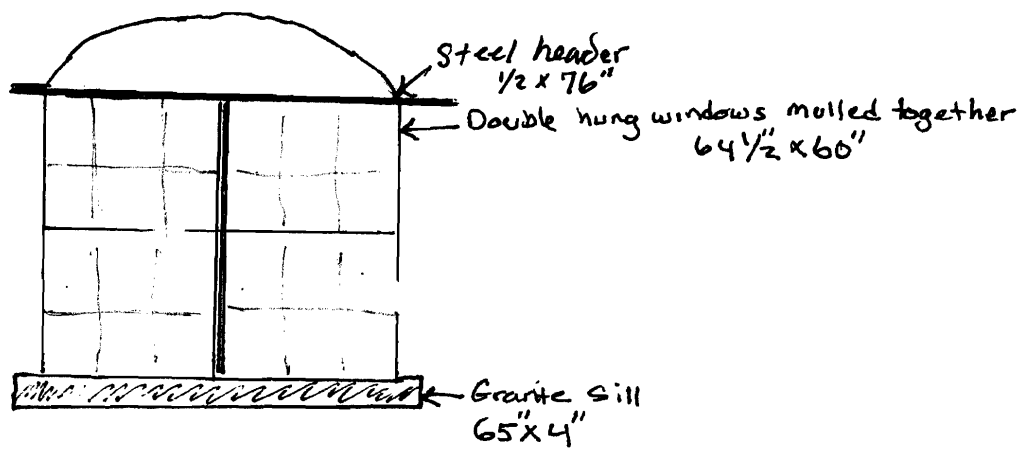 Steel header
1/2 x 76"
Double hung windows mulled together
64 1/2" x 60"
Granite Sill
65" x 4"